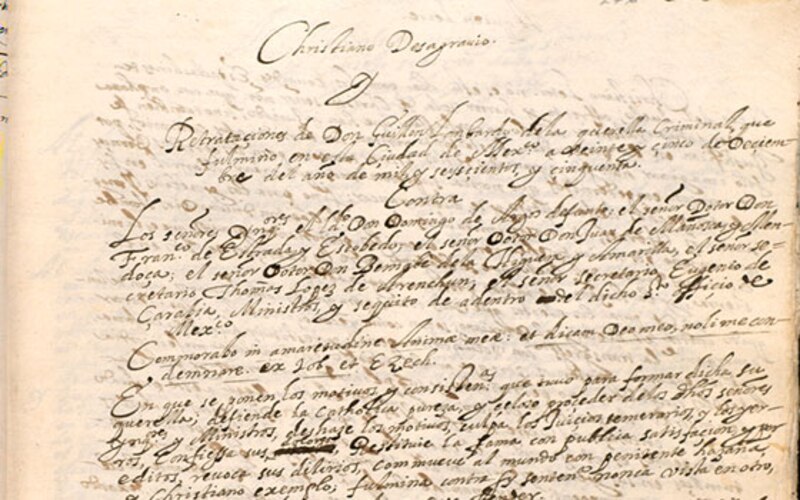 Christiano Desagravio.
y
Retrataciones de Don Guillen Lombardo de la querella Criminal, que
fulminó, en esta Ciudad de Mexco a veinte y cinco de Deciem-
bre del año de mil y seyscientos, y cinquenta.
Contra
Los señores Inqres el Ldo Don Domingo de Assas defante; el señor Dotor Don
Franco de Estrada y Escobedo; el señor Dotor Don Juan de Mañosca y Men-
doça; el señor Dotor Dn Bernabe de la Higuera y Amarilla, el señor se-
cretario Thomas Lopez de Arenchun, el señor secretario Eugenio de
Carabia, Ministros, y sequito de adentro del dicho So officio de
Mexco
Commorabo in amaritudine Animæ meæ: et dicam Deo meo, noli me con-
demnare. ex Iob. et Ezech.
En que se ponen los motivos, y consistena que tuvo para formar dicha su
querella; defiende la Catholica pureza, y celoso proceder de los dhos señores
Inqres y Ministros, deshase los motivos, culpa los Juicios temerarios, y los yer-
ros, Confiesa sus Restituie la fama con publica satisfacion, y por
editos, revoca sus delirios, commueve al mundo con penitente hazaña,
y Christiano exemplo; fulmina contra ssi sentena nonca vista en otro,